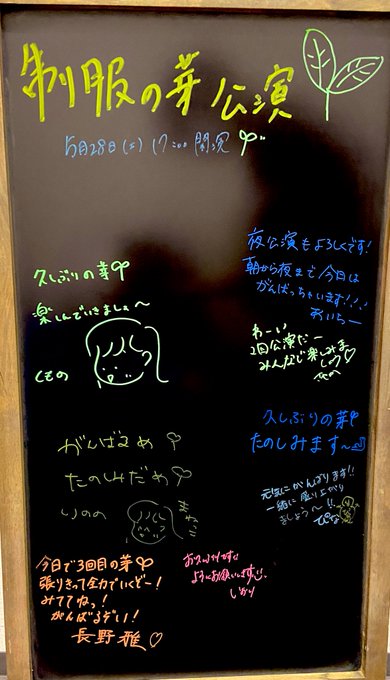 制服の芽公演
5月28日(土) 17:00 開演
夜公演もよろしくです!
朝から夜まで今日は
がんばっちゃいます!!!
おいちー
久しぶりの芽
楽しんでいきましょ〜
くるの
わーい
2回公演だー
みんなで楽しみま
しょう♡
久しぶりの芽
たのしみます〜
がんばるめ
たのしみだめ
りのの
元気にがんばります!!
一緒に盛り上がり
ましょう〜!!
ぴな
今日で3回目の芽
張りきって全力でいくぞー!
みててね!
がんばるぞい!
長野雅♡
お久しぶりです
よろしくお願いします
しおり